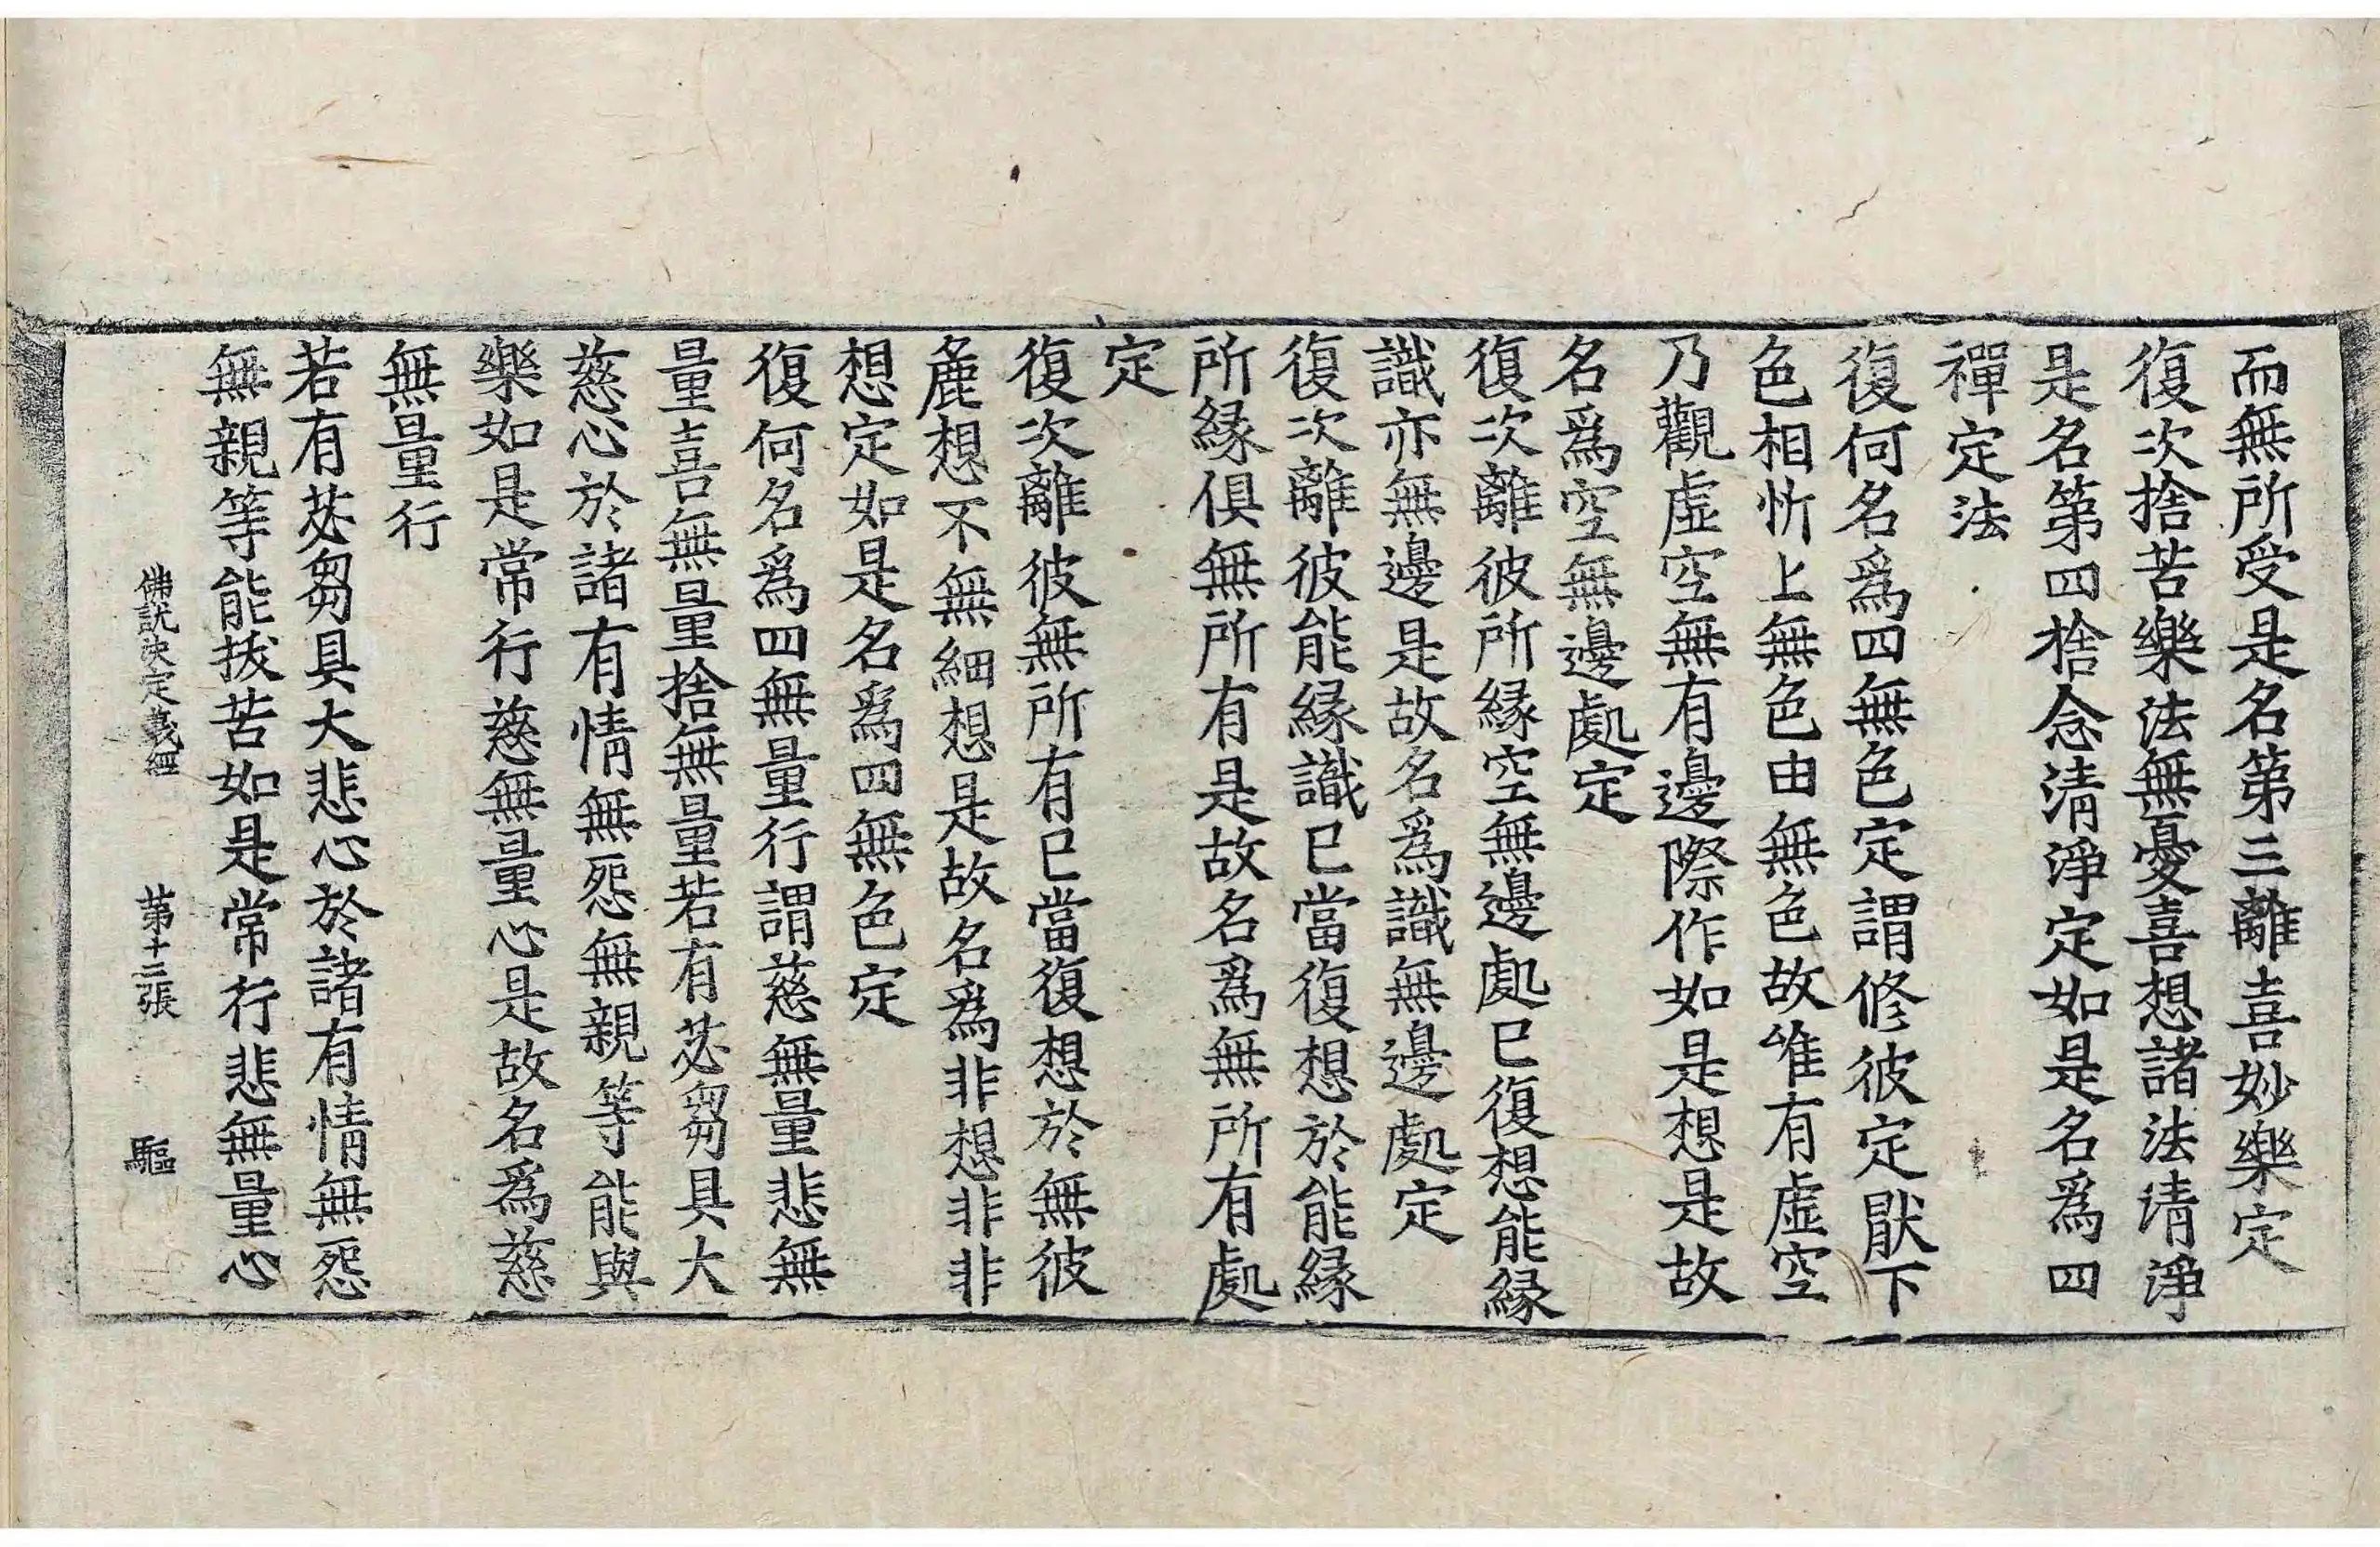 而無所受是名第三離喜妙樂定
復次捨苦樂法無憂喜想諸法清淨
是名第四捨念清淨定如是名爲四
禪定法
復何名爲四無色定謂修彼定猒下
色相忻上無色由無色故唯有虛空
乃觀虛空無有邊際作如是想是故
名爲空無邊處定
復次離彼所緣空無邊處已復想能緣
識亦無邊是故名爲識無邊處定
復次離彼能緣識已當復想於能緣
所緣俱無所有是故名爲無所有處
定
復次離彼無所有已當復想於無彼
麁想不無細想是故名爲非想非非
想定如是名爲四無色定
復何名爲四無量行謂慈無量悲無
量喜無量捨無量若有苾芻具大
慈心於諸有情無怨無親等能與
樂如是常行慈無量心是故名爲慈
無量行
若有苾芻具大悲心於諸有情無怨
無親等能拔苦如是常行悲無量心
佛說決定義經 第十二張 驅